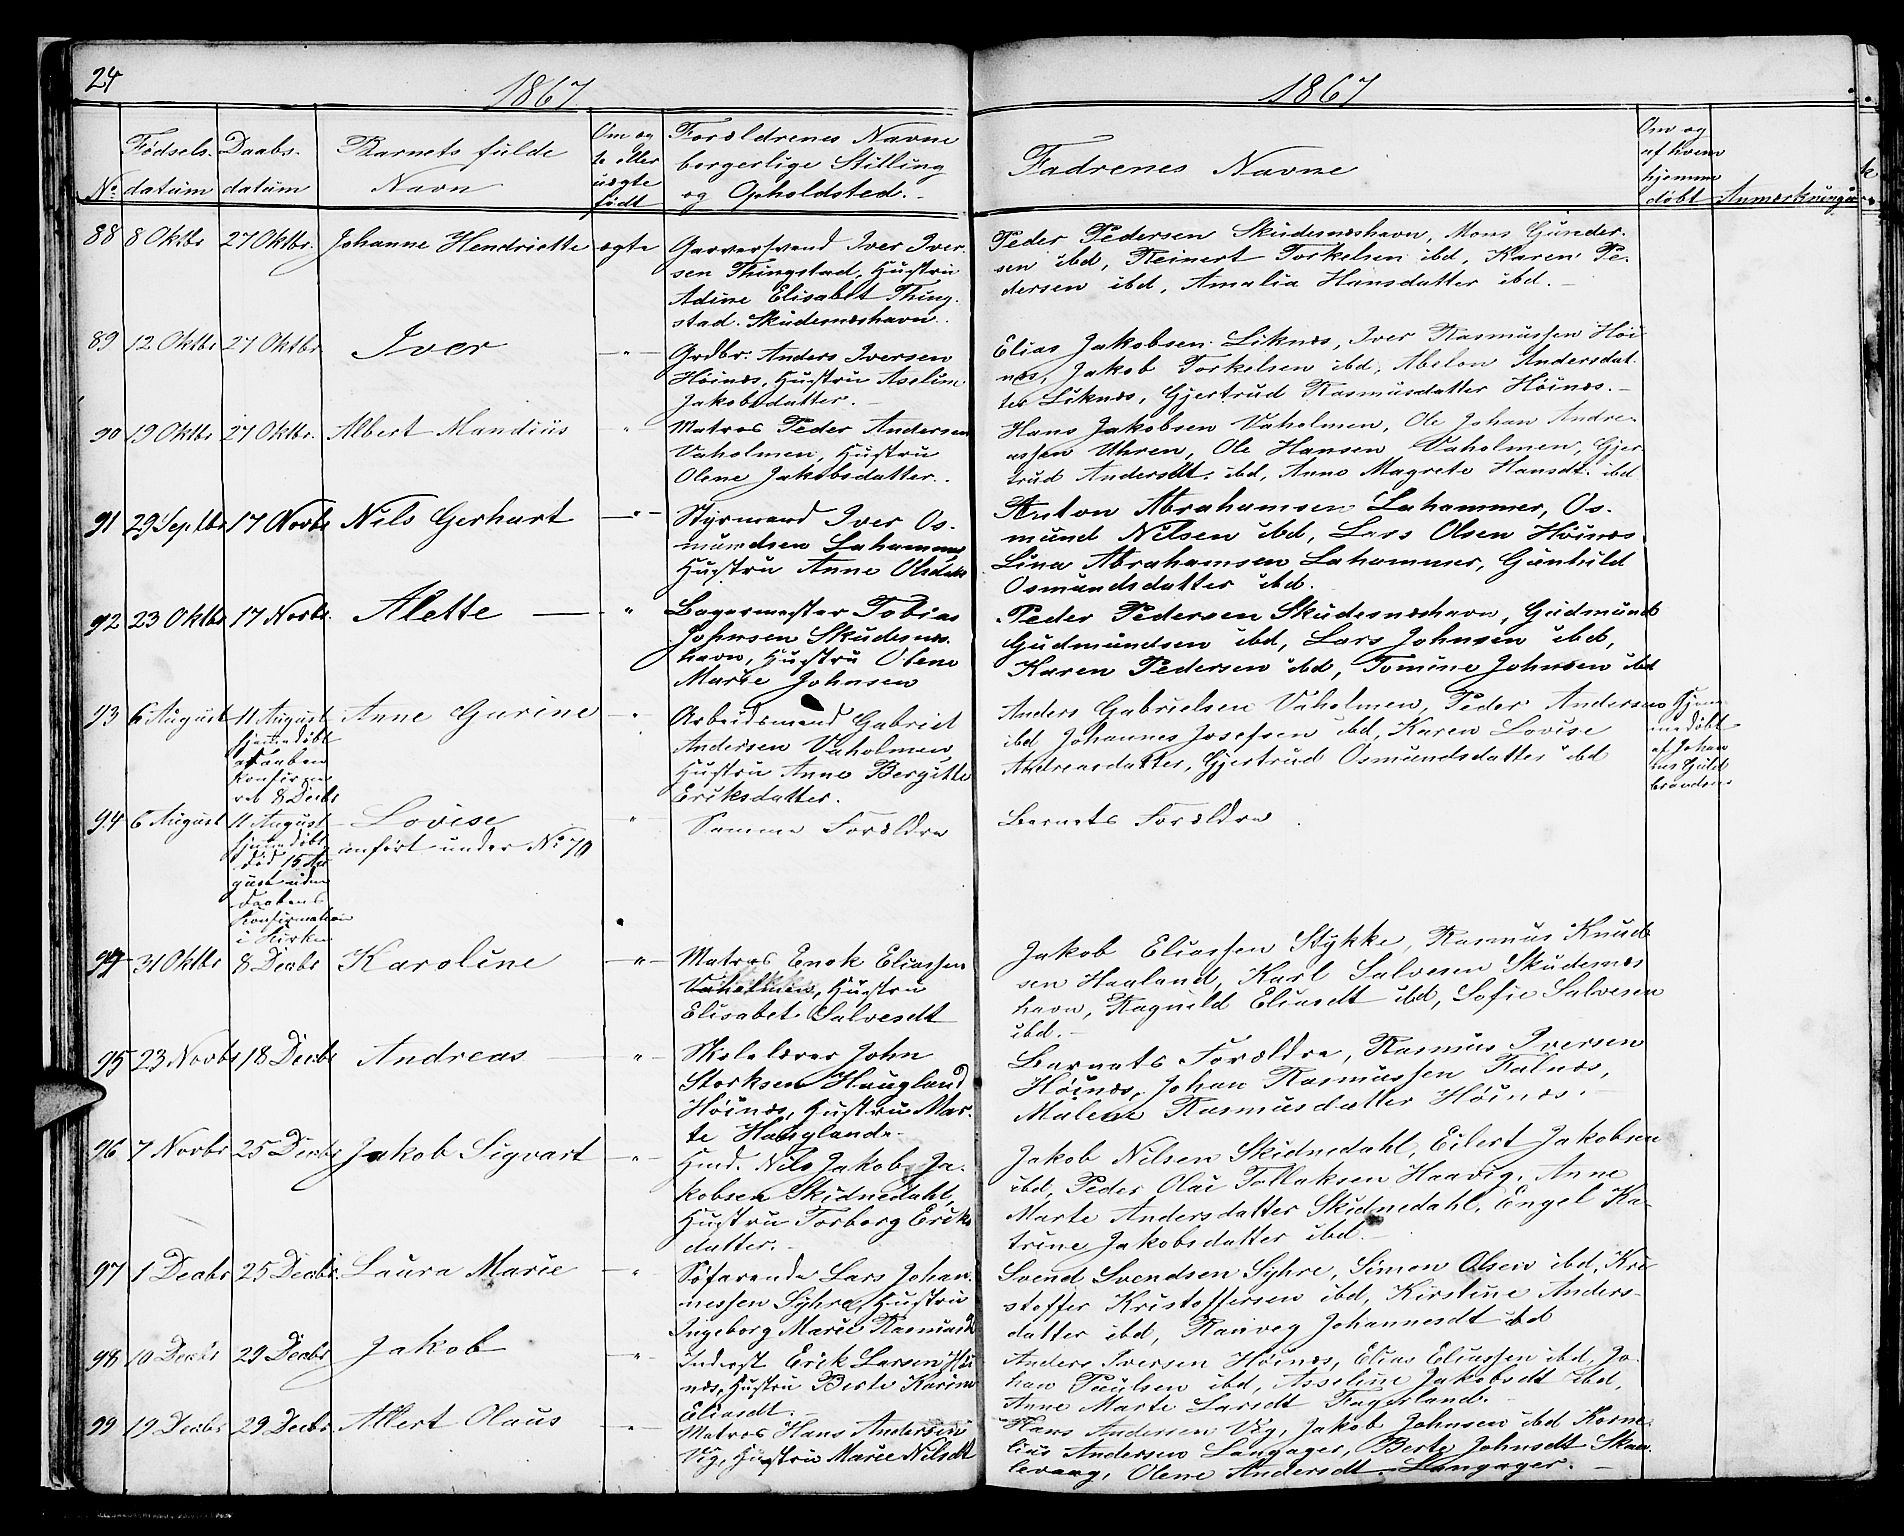 24
1867
1867
No
Fødsels-
datum
Daabs-
datum
Barnets fulde
Navn
Om æg
te eller
uægte
født
Forældrenes Navne
borgerlige Stilling
og Opholdsted.
Fadrenes Navne
Om og
af hvem
hjemme
døbt
Anmærkninger
88 8 Oktbr 27 Oktbr. Johanne Hendriette ægte
Garversvend Iver Iver-
sen Thingstad, Hustru
Adine Elisabet Thing-
stad. Skudesnæshavn.
Peder Pedersen Skudesnæshavn, Mons Gunder-
sen ibd, Reinert Torkelsen ibd, Karen Pe-
dersen ibd, Amalia Hansdatter ibd.
89 12 Oktbr 27 Oktbr Iver
Grdbr: Anders Iversen
Høinæs, Hustru Aselin
Jakobsdatter.
Elias Jakobsen Liknæs, Iver Rasmussen Høi
næs, Jakob Torkelsen ibd, Abelon Andersdat-
ter Liknæs, Gjertrud Rasmusdatter Høinæs.
90 19 Oktbr 27 Oktbr. Albert Mandius
Matros Peder Andersen
Vaholmen, Hustru
Olene Jakobsdatter.
Hans Jakobsen Vaholmen, Ole Johan Andre-
assen Uhren, Ole Hansen Vaholmen, Gjer
trud Andersdt. ibd, Anne Magrete Hansdt. ibd
91 29 Septbr 17 Novbr Nils Gerhart
Styrmand Iver Os-
mundsen Lahammer
Hustru Anne Olsdatr
Anton Abrahamsen Lahammer, Os-
mund Nilsen ibd, Lars Olsen Høinæs
Lina Abrahamsen Lahammer, Gunhild
Osmundsdatter ibd.
92 23 Oktbr 17 Novbr. Alette
Bagermester Tobias
Johnsen Skudesnæs-
havn, Hustru Olene
Marie Johnsen
Peder Pedersen Skudesnæshavn, Gudmund
Gudmundsen ibd, Lars Johnsen ibd,
Karen Pedersen ibd, Tomine Johnsen ibd
93 6 August 11 August Anne Gurine
hjemmedøbt
Daaben
konfirme
ret 8 Decbr
Arbeidsmand Gabriel
Andersen Vaholmen
Hustru Anne Bergitte
Eriksdatter.
Anders Gabrielsen Vaholmen, Peder Andersen
ibd Johannes Josefsen ibd, Karen Lovise
Andreasdatter, Gjertrud Osmundsdatter ibd
Hjem
medøbt
af Johan
nes Guld
brandsen
94 6 August 11 August Lovise
hjemmedøbt
død 15 Au
gust uden
Daabens
Konfirmation
i Kirken
anført under No 70
Samme Forældre
Barnets Forældre
94 31 Oktbr 8 Decbr Karoline
Matros Enok Eliassen
Vaholmen, Hustru
Elisabet Salvesdt
Jakob Eliassen Stykke, Rasmus Knud
sen Haaland, Karl Salvesen Skudesnæs
havn, Ragnild Eliasdt ibd, Sofie Salvesen
ibd.
95 23 Novbr 18 Decbr Andreas
Skolelærer John
Storksen Haugland
Høinæs, Hustru Mar-
te Hauglande.
Barnets Forældre, Rasmus Iversen
Høinæs, Johan Rasmussen Falnæs,
Malene Rasmusdatter Høinæs.
96 7 Novbr 25 Decbr Jakob Sigvart
Hmd. Nils Jakob Ja-
kobsen Skidnedahl,
Hustru Torborg Eriks
datter.
Jakob Nilsen Skidnedahl, Eilert Jakobsen
ibd, Peder Olai Tollaksen Haavig, Anne
Marte Andersdatter Skidnedahl, Engel Ka-
trine Jakobsdatter ibd.
97 1 Decbr 25 Decbr. Laura Marie
Søfarende Lars Johan-
nessen Syhre, Hustru
Ingeborg Marie Rasmusdt
Svend Svendsen Syhre, Simon Olsen ibd, Kri-
stoffer Kristoffersen ibd, Kirstine Anders-
datter ibd, Ranveg Johannesdt ibd
98 10 Decbr 29 Decbr Jakob
Inderst Erik Larsen Høi
næs, Hustru Berte Karine
Eliasdt.
Anders Iversen Høinæs, Elias Eliassen ibd, Jo-
han Paulsen ibd, Asseline Jakobsdt ibd,
Anne Marte Larsdt Fagerland.
99 19 Decbr 29 Decbr. Albert Olaus
Matros Hans Andersen
Vig, Hustru Marie Nilsdt
Hans Andersen Vig, Jakob Johnsen ibd Korne-
lius Andersen Langager, Berte Johnsdt Skaa
levaag, Olene Andersdt Langager.